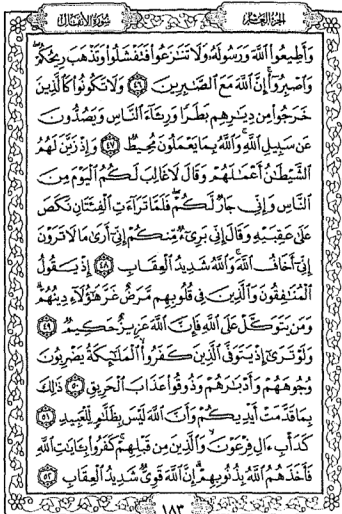 سورة الأنفال
الجزء العاشر
وَأَطِيعُوا۟ ٱللَّهَ وَرَسُولَهُۥ وَلَا تَنَٰزَعُوا۟ فَتَفْشَلُوا۟ وَتَذْهَبَ رِيحُكُمْ ۖ
وَٱصْبِرُوٓا۟ ۚ إِنَّ ٱللَّهَ مَعَ ٱلصَّٰبِرِينَ ٤٦ وَلَا تَكُونُوا۟ كَٱلَّذِينَ
خَرَجُوا۟ مِن دِيَٰرِهِم بَطَرًا وَرِئَآءَ ٱلنَّاسِ وَيَصُدُّونَ
عَن سَبِيلِ ٱللَّهِ ۚ وَٱللَّهُ بِمَا يَعْمَلُونَ مُحِيطٌ ٤٧ وَإِذْ زَيَّنَ لَهُمُ
ٱلشَّيْطَٰنُ أَعْمَٰلَهُمْ وَقَالَ لَا غَالِبَ لَكُمُ ٱلْيَوْمَ مِنَ
ٱلنَّاسِ وَإِنِّى جَارٌ لَّكُمْ ۖ فَلَمَّا تَرَآءَتِ ٱلْفِئَتَانِ نَكَصَ
عَلَىٰ عَقِبَيْهِ وَقَالَ إِنِّى بَرِىٓءٌ مِّنكُمْ إِنِّىٓ أَرَىٰ مَا لَا تَرَوْنَ
إِنِّىٓ أَخَافُ ٱللَّهَ ۚ وَٱللَّهُ شَدِيدُ ٱلْعِقَابِ ٤٨ إِذْ يَقُولُ
ٱلْمُنَٰفِقُونَ وَٱلَّذِينَ فِى قُلُوبِهِم مَّرَضٌ غَرَّ هَٰٓؤُلَآءِ دِينُهُمْ ۗ
وَمَن يَتَوَكَّلْ عَلَى ٱللَّهِ فَإِنَّ ٱللَّهَ عَزِيزٌ حَكِيمٌ ٤٩
وَلَوْ تَرَىٰٓ إِذْ يَتَوَفَّى ٱلَّذِينَ كَفَرُوا۟ ۙ ٱلْمَلَٰٓئِكَةُ يَضْرِبُونَ
وُجُوهَهُمْ وَأَدْبَٰرَهُمْ وَذُوقُوا۟ عَذَابَ ٱلْحَرِيقِ ٥٠ ذَٰلِكَ
بِمَا قَدَّمَتْ أَيْدِيكُمْ وَأَنَّ ٱللَّهَ لَيْسَ بِظَلَّٰمٍ لِّلْعَبِيدِ ٥١
كَدَأْبِ ءَالِ فِرْعَوْنَ ۙ وَٱلَّذِينَ مِن قَبْلِهِمْ ۚ كَفَرُوا۟ بِـَٔايَٰتِ ٱللَّهِ
فَأَخَذَهُمُ ٱللَّهُ بِذُنُوبِهِمْ ۗ إِنَّ ٱللَّهَ قَوِىٌّ شَدِيدُ ٱلْعِقَابِ ٥٢
١٨٣